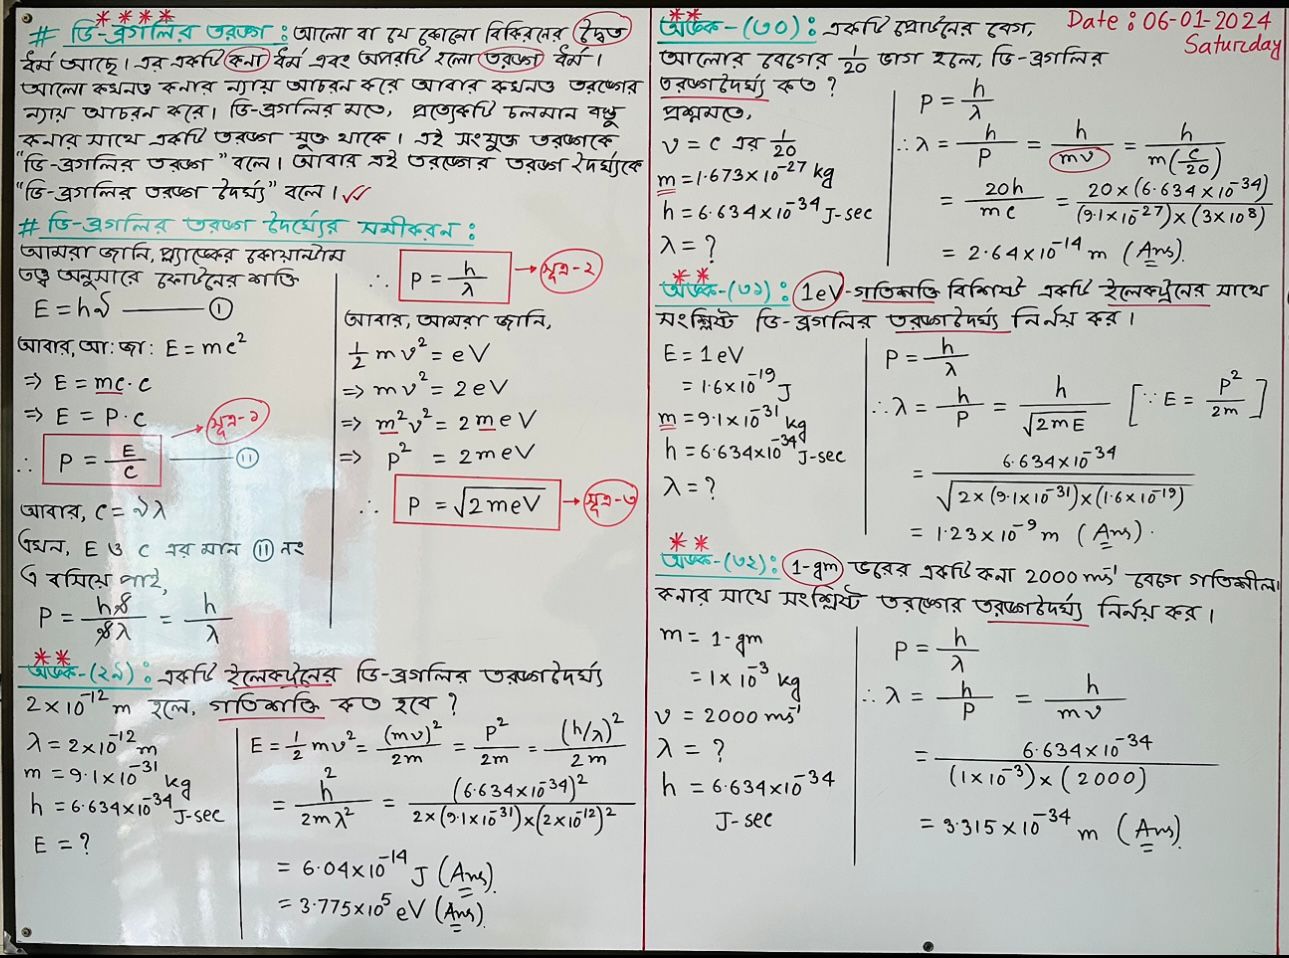 # ডি-ব্রগলির তরঙ্গ : আলো বা যে কোনো বিকিরনের দ্বৈত
ধর্ম আছে। এর একটি কনা ধর্ম এবং অপরটি হলো তরঙ্গ ধর্ম।
আলো কখনও কনার ন্যায় আচরন করে আবার কখনও তরঙ্গের
ন্যায় আচরন করে। ডি-ব্রগলির মতে, প্রত্যেকটি চলমান বস্তু
কনার সাথে একটি তরঙ্গ যুক্ত থাকে। এই সংযুক্ত তরঙ্গকে
"ডি-ব্রগলির তরঙ্গ" বলে। আবার এই তরঙ্গের তরঙ্গ দৈর্ঘ্যকে
"ডি-ব্রগলির তরঙ্গ দৈর্ঘ্য" বলে।
# ডি-ব্রগলির তরঙ্গ দৈর্ঘ্যের সমীকরন :
আমরা জানি, প্ল্যাঙ্কের কোয়ান্টাম
তত্ত্ব অনুসারে ফোটনের শক্তি
E = hν ——— (i)
আবার, আ: জা: E = mc²
=> E = mc·c
=> E = P·c
∴ P = E/c ——— (ii) → সূত্র-১
আবার, c = νλ
এখন, E ও c এর মান (ii) নং
এ বসিয়ে পাই,
P = hν/νλ = h/λ
∴ P = h/λ → সূত্র-২
আবার, আমরা জানি,
½ mv² = eV
=> mv² = 2eV
=> m²v² = 2meV
=> p² = 2meV
∴ P = √2meV → সূত্র-৩
অংক-(২৯) : একটি ইলেকট্রনের ডি-ব্রগলির তরঙ্গদৈর্ঘ্য
2×10⁻¹² m হলে, গতিশক্তি কত হবে ?
λ = 2×10⁻¹² m
m = 9·1×10⁻³¹ kg
h = 6·634×10⁻³⁴ J-sec
E = ?
E = ½ mv² = (mv)²/2m = P²/2m = (h/λ)²/2m
= h²/2mλ² = (6·634×10⁻³⁴)²/2×(9·1×10⁻³¹)×(2×10⁻¹²)²
= 6·04×10⁻¹⁴ J (Ans).
= 3·775×10⁵ eV (Ans).
Date : 06-01-2024
Saturday
অংক-(৩০) : একটি প্রোটনের বেগ,
আলোর বেগের 1/20 ভাগ হলে, ডি-ব্রগলির
তরঙ্গদৈর্ঘ্য কত ?
প্রশ্নমতে,
v = c এর 1/20
m = 1·673×10⁻²⁷ kg
h = 6·634×10⁻³⁴ J-sec
λ = ?
P = h/λ
∴ λ = h/P = h/mv = h/m(c/20)
= 20h/mc = 20×(6·634×10⁻³⁴)/(9·1×10⁻²⁷)×(3×10⁸)
= 2·64×10⁻¹⁴ m (Ans).
অংক-(৩১) : 1eV-গতিশক্তি বিশিষ্ট একটি ইলেকট্রনের সাথে
সংশ্লিষ্ট ডি-ব্রগলির তরঙ্গদৈর্ঘ্য নির্নয় কর।
E = 1eV
= 1·6×10⁻¹⁹ J
m = 9·1×10⁻³¹ kg
h = 6·634×10⁻³⁴ J-sec
λ = ?
P = h/λ
∴ λ = h/P = h/√2mE [∵ E = P²/2m]
= 6·634×10⁻³⁴/√2×(9·1×10⁻³¹)×(1·6×10⁻¹⁹)
= 1·23×10⁻⁹ m (Ans).
অংক-(৩২) : 1-gm ভরের একটি কনা 2000 ms⁻¹ বেগে গতিশীল।
কনার সাথে সংশ্লিষ্ট তরঙ্গের তরঙ্গদৈর্ঘ্য নির্নয় কর।
m = 1-gm
= 1×10⁻³ kg
v = 2000 ms⁻¹
λ = ?
h = 6·634×10⁻³⁴
J-sec
P = h/λ
∴ λ = h/P = h/mv
= 6·634×10⁻³⁴/(1×10⁻³)×(2000)
= 3·315×10⁻³⁴ m (Ans).